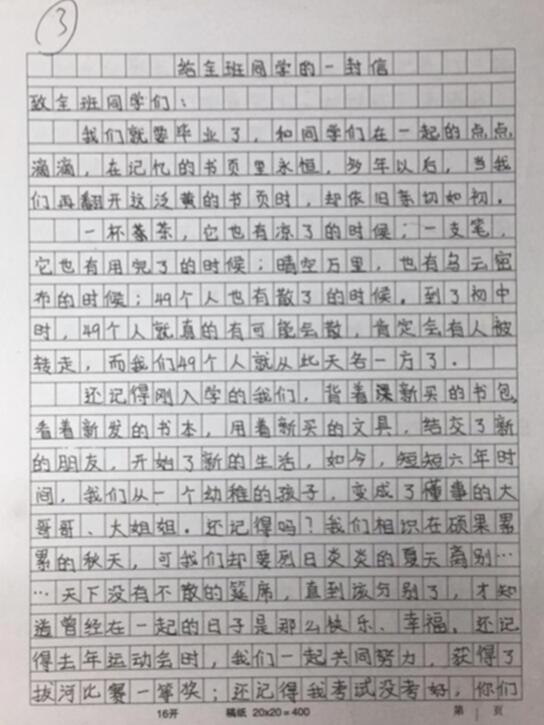 3
给全班同学的一封信
致全班同学们：
我们就要毕业了，和同学们在一起的点点
滴滴，在记忆的书页里永恒，多年以后，当我
们再翻开这泛黄的书页时，却依旧亲切如初。
一杯茶，它也有凉了的时候；一支笔，
它也有用完了的时候；晴空万里，也有乌云密
布的时候；49个人也有散了的时候。到了初中
时，49个人就真的有可能会散，肯定会有人被
转走，而我们49个人就从此天各一方了。
还记得刚入学的我们，背着新买的书包，
看着新发的书本，用着新买的文具，结交了新
的朋友，开始了新的生活，如今，短短六年时
间，我们从一个幼稚的孩子，变成了懂事的大
哥哥、大姐姐。还记得吗？我们相识在硕果累
累的秋天，可我们却要烈日炎炎的夏天离别…
…天下没有不散的筵席，直到该分别了，才知
道曾经在一起的日子是那么快乐、幸福。还记
得去年运动会时，我们一起共同努力，获得了
拔河比赛一等奖；还记得我考试没考好，你们
16开 稿纸 20x20=400 第 页